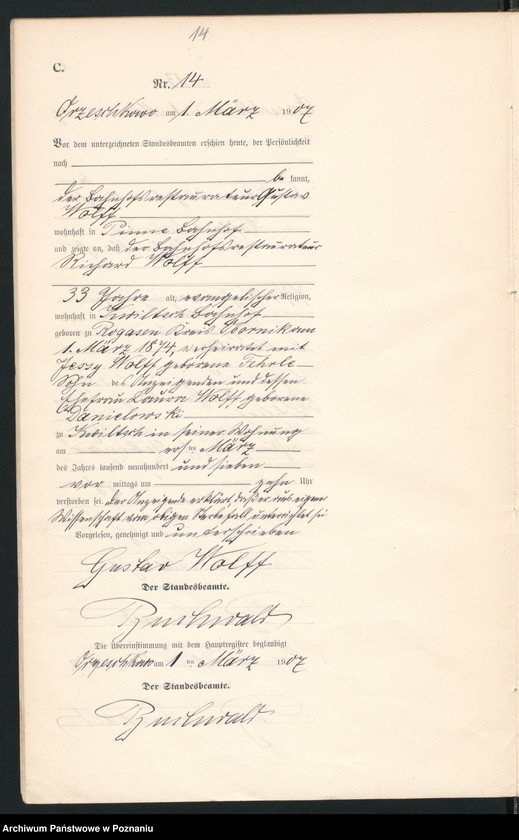 14
C.
Nr. 14
Orzeschkowo am 1. März 1907
Vor dem unterzeichneten Standesbeamten erschien heute, der Persönlichkeit
nach
be kannt,
der Bahnhofsrestaurateur Gustav
Wolff
wohnhaft in Pinne Bahnhof
und zeigte an, daß der Bahnhofsrestaurateur
Richard Wolff
33 Jahre alt, evangelischer Religion,
wohnhaft in Kwiltsch Bahnhof
geboren zu Rogasen Kreis Obornik am
1. März 1874, verheiratet mit
Jessy Wolff geborene
Sohn des Anzeigenden und dessen
Ehefrau Laura Wolff geborene
Danielowski
zu Kwiltsch in seiner Wohnung
am ersten März
des Jahres tausend neunhundert und sieben
vor mittags um zehn Uhr
verstorben sei. Der Anzeigende erklärt daß er aus eigner
Wissenschaft vom obigen Sterbefall unterrichtet sei
Vorgelesen, genehmigt und unterschrieben
Gustav Wolff
Der Standesbeamte.
Buchwald
Die Übereinstimmung mit dem Hauptregister beglaubigt
Orzeschkowo am 1 ten März 1907
Der Standesbeamte.
Buchwald
Archiwum Państwowe w Poznaniu